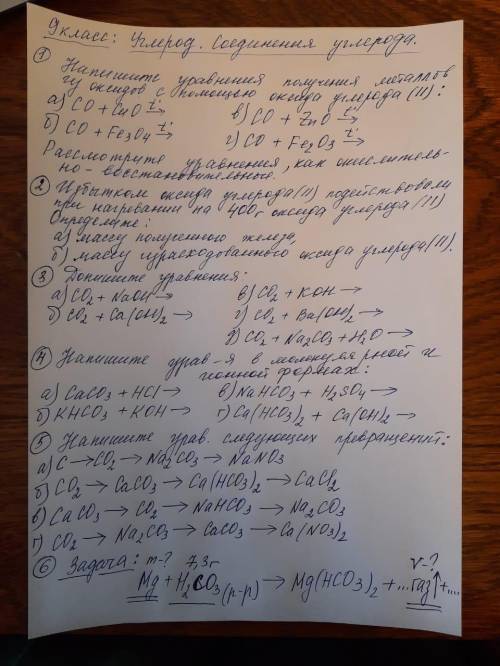 9 класс: Углерод. Соединения углерода.
① Напишите уравнения получения металлов
из оксидов с помощью оксида углерода (II):
а) CO + CuO t→ в) CO + ZnO t→
б) CO + Fe₃O₄ t→ г) CO + Fe₂O₃ t→
Рассмотрите уравнения, как окислитель-
но-восстановительные.
② Избытком оксида углерода(II) подействовали
при нагревании на 400г оксида углерода (II)
Определите:
а) массу полученного железа,
б) массу израсходованного оксида углерода(II).
③ Допишите уравнения:
а) CO₂ + NaOH → в) CO₂ + KOH →
б) CO₂ + Ca(OH)₂ → г) CO₂ + Ba(OH)₂ →
д) CO₂ + Na₂CO₃ + H₂O →
④ Напишите урав-я в молекулярной и
ионной формах:
а) CaCO₃ + HCl → в) NaHCO₃ + H₂SO₄ →
б) KHCO₃ + KOH → г) Ca(HCO₃)₂ + Ca(OH)₂ →
⑤ Напишите урав. следующих превращений:
а) C → CO₂ → Na₂CO₃ → NaNO₃
б) CO₂ → CaCO₃ → Ca(HCO₃)₂ → CaCl₂
в) CaCO₃ → CO₂ → NaHCO₃ → Na₂CO₃
г) CO₂ → Na₂CO₃ → CaCO₃ → Ca(NO₃)₂
⑥ Задача: m-? 7,3г V-?
Mg + H₂CO₃ (р-р) → Mg(HCO₃)₂ + ...газ↑ + ....